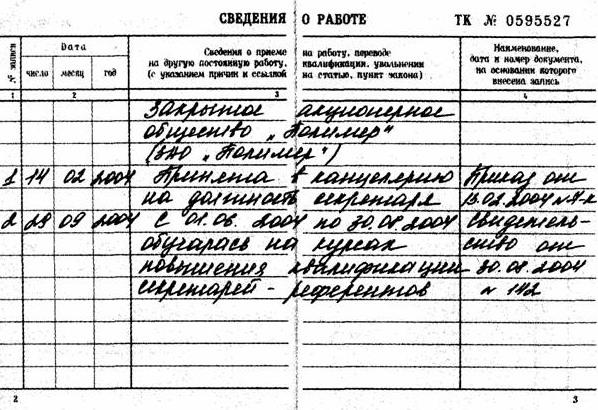 СВЕДЕНИЯ О РАБОТЕ ТК № 0595527
№ записи
Дата
Сведения о приеме на работу, переводе
на другую постоянную работу, квалификации, увольнении
(с указанием причин и ссылкой на статью, пункт закона)
Наименование,
дата и номер документа,
на основании которого
внесена запись
число месяц год
1 2 3 4
Закрытое акционерное
общество „Полимер"
(ЗАО „Полимер")
1 14 02 2004 Принята в канцелярию Приказ от
на должность секретаря 13.02.2004 № 4-к
2 28 09 2004 С 01.06.2004 по 30.08.2004 Свидетель-
обучалась на курсах ство от
повышения квалификации 30.08.2004
секретарей-референтов № 142
2 3